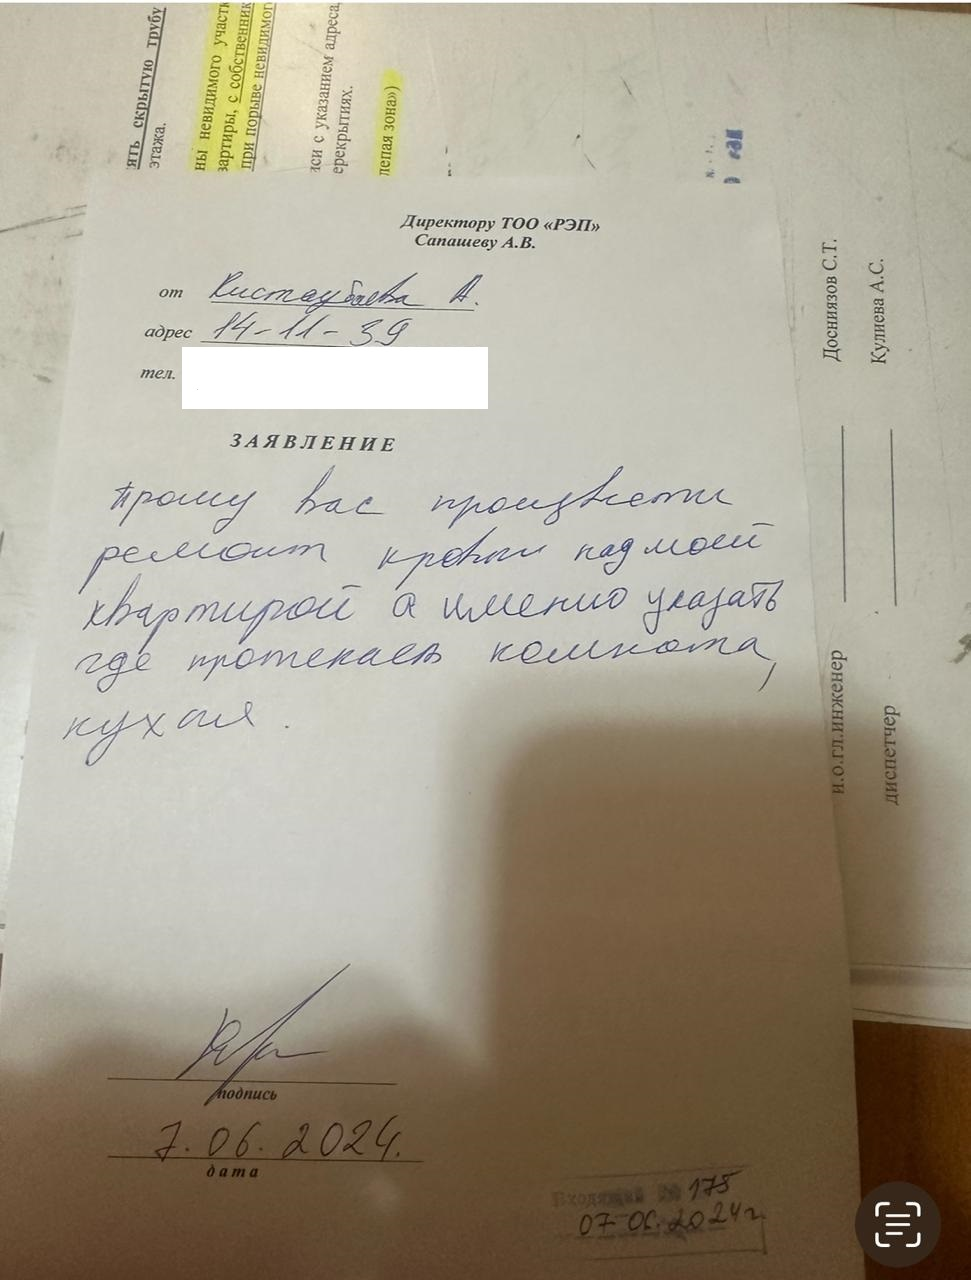 ять скрытую трубу
этажа.
ны невидимого участк
вартиры, с собственник
при порыве невидимог
иси с указанием адреса
ерекрытиях.
лепая зона»)
Директору ТОО «РЭП»
Сапашеву А.В.
от Кистаубаева А.
адрес 14-11-39
тел.
ЗАЯВЛЕНИЕ
Прошу вас произвести
ремонт кровли над моей
квартирой а именно указать
где протекает комната,
кухня.
подпись
7.06.2024.
дата
Входящий № 175
07 06. 2024 г.
и.о.гл.инженер Досниязов С.Т.
диспетчер Кулиева А.С.